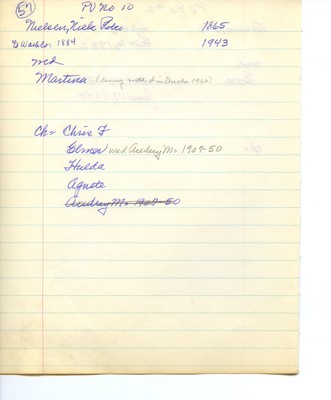 51 PV No 10
Nielsen, Niels Peder 1865
to Wash Co. 1884 1943
wed
Martinea (living in Omaha 1962)
Ch = Chris F
Elmer wed Audrey M. 1907-50
Hulda
Agnete
Audrey M. 1907-50